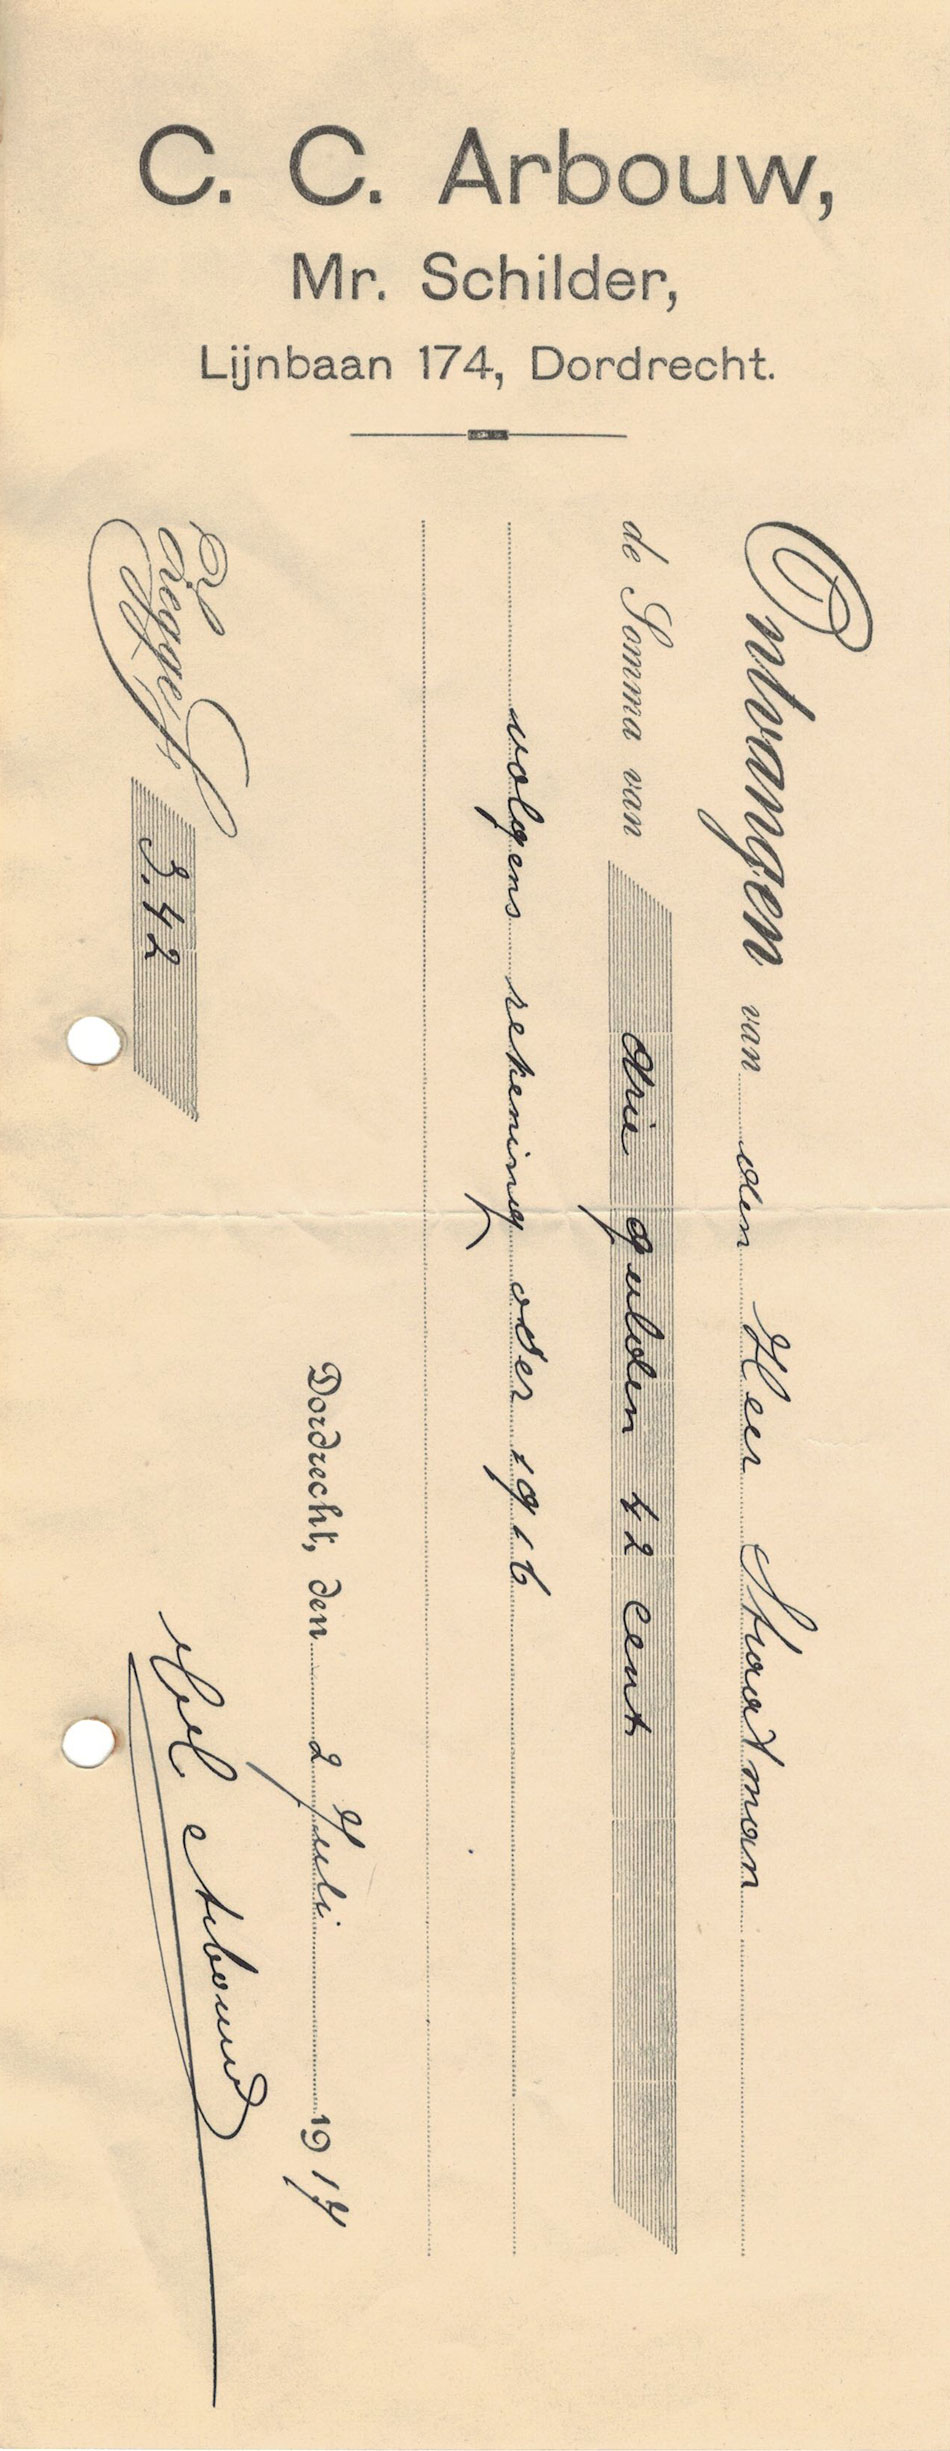 C. C. Arbouw,
Mr. Schilder,
Lijnbaan 174, Dordrecht.
Ontvangen van den Heer Straatman
de Somma van drie gulden 42 cent
volgens rekening over 1916
Dordrecht, den 2 Juli 1917
Zegge f 3.42
Arbouw